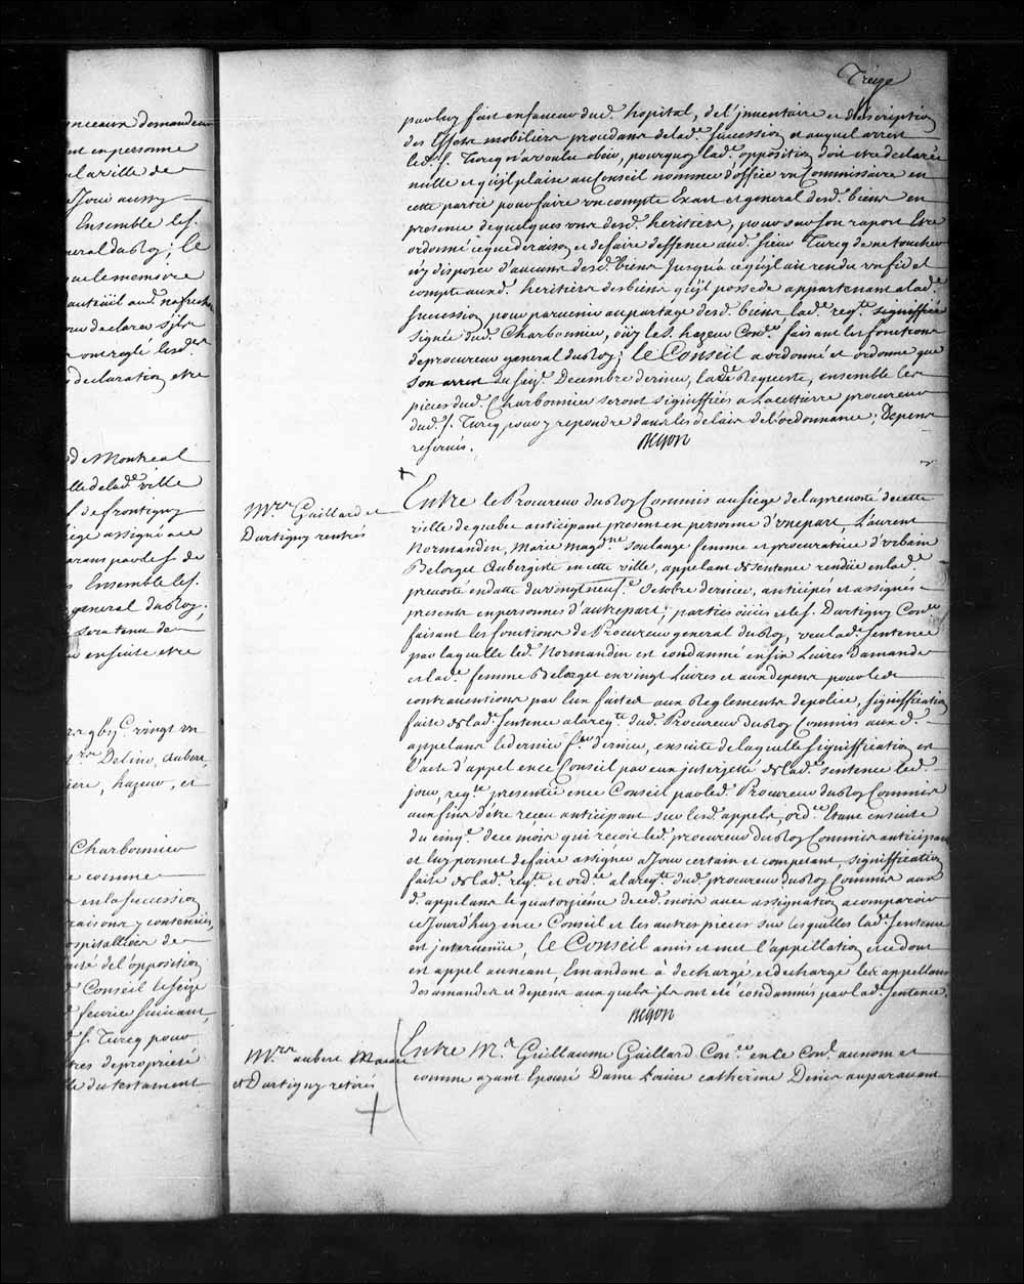 nceaux demandeur
nt en personne
la ville de
Jour aussy
Ensemble les.
neral du Roy; le
que le memoire
auteüil aud.
declarer s'ils
ont reglé lesd.
declaration etre
de Montreal
lle de lad.e ville
de frontigny
iege assigné a ce
par led. s. de
Ensemble les.
general du Roy;
sera tenu de
ensuite etre
vingt un
Delino, aubert
hazeur, et
Charbonnier
comme
en la succession
raisons y contenües,
ospitallier de
de l'opposition
Conseil le seize
fevrier suivant,
s. Turcq pour
tres de proprieté
du testament
Treize
par luy fait en faveur dud. hopital, de l'inventaire et description
des Effets mobiliers procedans de lad.e succession et auquel arrest
led. s. Turcq n'a voulu obeir, pourquoy lad.e opposition doit etre declarée
nulle et qu'il plaise au Conseil nommer d'office un Commissaire en
cette partie pour faire un compte Exact et general desd. biens en
presence de quelques uns desd. heritiers, pour sur son raport Etre
ordonné ce que de raison, et de faire deffence aud. sieur Turcq de ne toucher
ny disposer d'aucuns desd. biens Jusqu'a ce qu'il ait rendu un fidel
compte auxd. heritiers des biens qu'il possede appartenant a lad.e
succession pour parvenir au partage desd. biens lad.e req.te signiffiée
signée dud. Charbonnier, oüy le s. hazeur Con.er faisant les fonctions
de procureur general du Roy; le Conseil a ordonné et ordonne que
son arrest du Decembre dernier, lad.e Requeste, ensemble les
pieces dud. Charbonnier seront signiffiées a Lacettiere procureur
dud. s. Turcq pour y repondre dans les delais de l'ordonnance; Depens
reservés.
Begon
M.rs Gaillard et
Dartigny rentrés
Entre le Procureur du Roy Commis au siege de la prevosté de cette
ville de quebec anticipant present en personne d'une part, Laurent
Normandin, Marie magd.ne soulange femme et procuratrice d'urbain
Belorget Aubergiste en cette ville, appelans de sentence rendüe en lad.e
prevosté en datte du vingt neuf.e octobre dernier, anticipés et assignés
presents en personne d'autre part; parties oüies et le s. Dartigny Con.er
faisant les fonctions de Procureur general du Roy, veu lad.e sentence
par laquelle led. Normandin est condamné en six Livres d'amande
et lad.e femme Belorget en vingt Livres et aux depens pour les
contraventions par eux faites aux Reglements de police, signiffication
faite de lad. sentence a la req.te dud. Procureur du Roy Commis aux d.
appelans le dernier dernier, ensuite de laquelle signiffication est
l'acte d'appel en ce Conseil par eux interjetté de lad. sentence led.
jour, req.te presentée en ce Conseil par led. Procureur du Roy Commis
aux fins d'etre receu anticipant sur lesd. appels, ord.ce Etant ensuite
du cinq. de ce mois qui reçoit led. procureur du Roy Commis anticipant
et luy permet de faire assigner a Jour certain et competant, signiffication
faite de lad. req.te et ord.ce a la req.te dud. procureur du Roy Commis aux
d. appelans le quatorzieme de ced. mois avec assignation a comparoir
ce Jourd'huy en ce Conseil et les autres pieces sur lesquelles lad. sentence
est intervenüe, le Conseil a mis et met l'appellation et ce dont
est appel au neant, Emandant à dechargé et decharge les appellans
des amandes et depens aux quels ils ont eté condamnés par lad. sentence.
Begon
M.rs aubert Macart
et Dartigny retirés
Entre M.e Guillaume Gaillard Con.er en le Con.l au nom et
comme ayant Epousé Dame Loüise catherine Denis auparavant